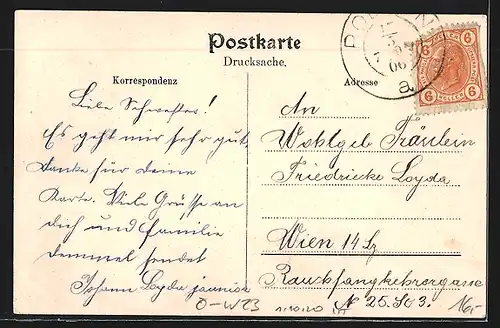 Postkarte
Drucksache.
Korrespondenz
Adresse
Liebe Schwester!
Es geht mir sehr gut,
danke für deine
Karte. Viele Grüsse an
dich und Familie
sendet
Johann Loyda
An
Wohlgeb Fräulein
Friedricke Loyda
Wien 14
Rauchfangkehrergasse
N 25. 3.
6 6
6 6
a
O-W23